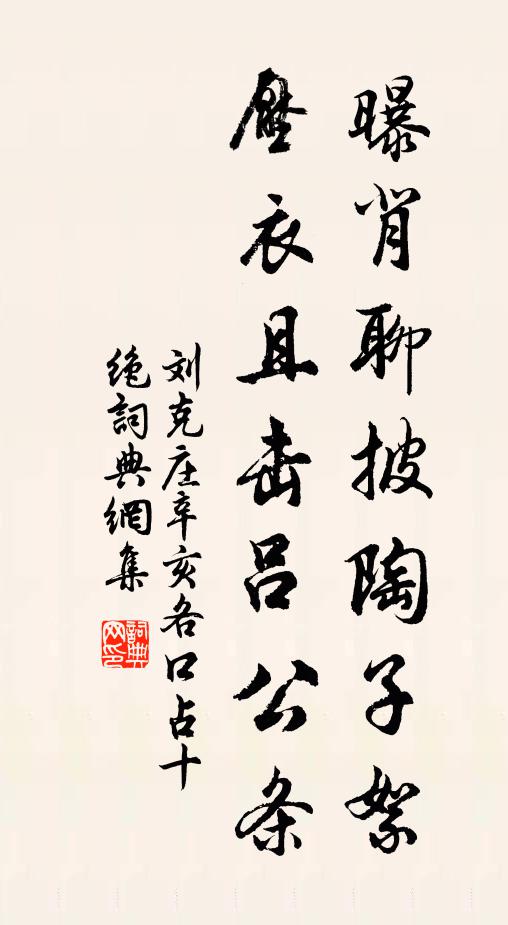 曝背聊披陶子絮
壓衣且击吕公条
刘克庄辛亥各口占十
絶詞典網集
詞典网印